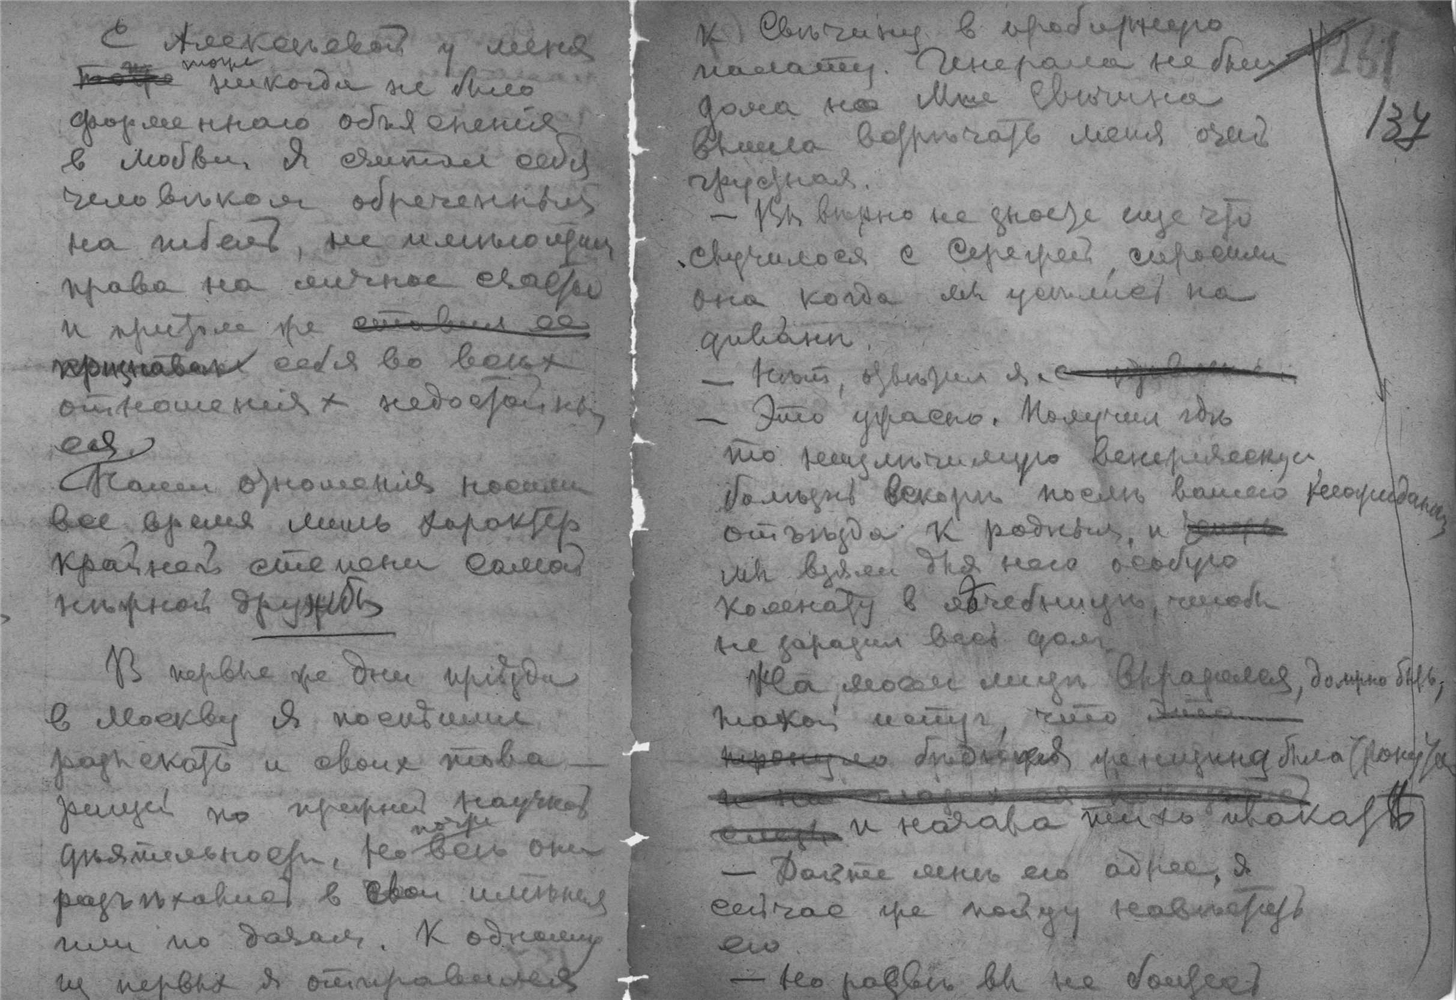 С Алексеевой у меня
тоже никогда не было
форменнаго объясненія
в любви. Я считал себя
человѣком обреченным
на гибель, не имѣющим
права на личное счастье
и притом же ставил ее
признавал себя во всѣх
отношеніях недостойным
ея.
Наши отношенія носили
все время лишь характер
крайней степени самой
нѣжной дружбы
В первые же дни пріѣзда
в Москву я посѣтил
разыскать и своих това-
рищей по прежней научной
дѣятельности. Но почти всѣ они
разъѣхались в свои имѣнья
или по дачам. К одному
из первых я отправился
к Свѣчину в пробирную
палату. Генерала не было
дома но М-ме Свѣчина
вышла встрѣчать меня очень
грустная.
— Вы вѣрно не знаете еще что
случилося с Сережей, спросила
она когда мы усѣлись на
диванѣ.
— Нѣт, отвѣтил я.
— Это ужасно. Получил гдѣ
то неизлѣчимую венерическую
болѣзнь вскорѣ послѣ вашего неожиданнаго
отъѣзда к родным, и
мы взяли для него особую
комнату в лѣчебницѣ, чтобы
не заразил весь дом.
На моем лицѣ выразился, должно быть,
такой испуг, что
бѣдная женщина была тронута
и начала тихо плакать
— Дайте мнѣ его адрес, я
сейчас же пойду навѣстить
его.
— Но развѣ вы не боитесь
137